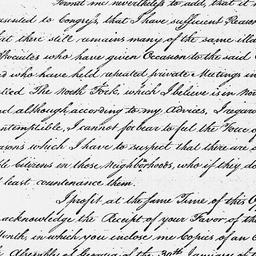 Permit me nevertheless to add, that it
resented to Congress, that I have sufficient Reason
that there still remains many of the same illa
Associates who have given Occasion to the said
and who have held repeated private Meetings in
called The North Fork which I believe is in Nor
and although according to my Advices, I regard
contemptible, I cannot forbear to feel the Force of
Reasons which I have to suspect that there are s
ble Citizens in those Neighborhoods, who if they do
at least countenance them.
I profit at the same Time of this O
acknowledge the Receipt of your Favor of th
Month, in which you enclose me Copies of an
Assembly of Georgia of the 30th January of